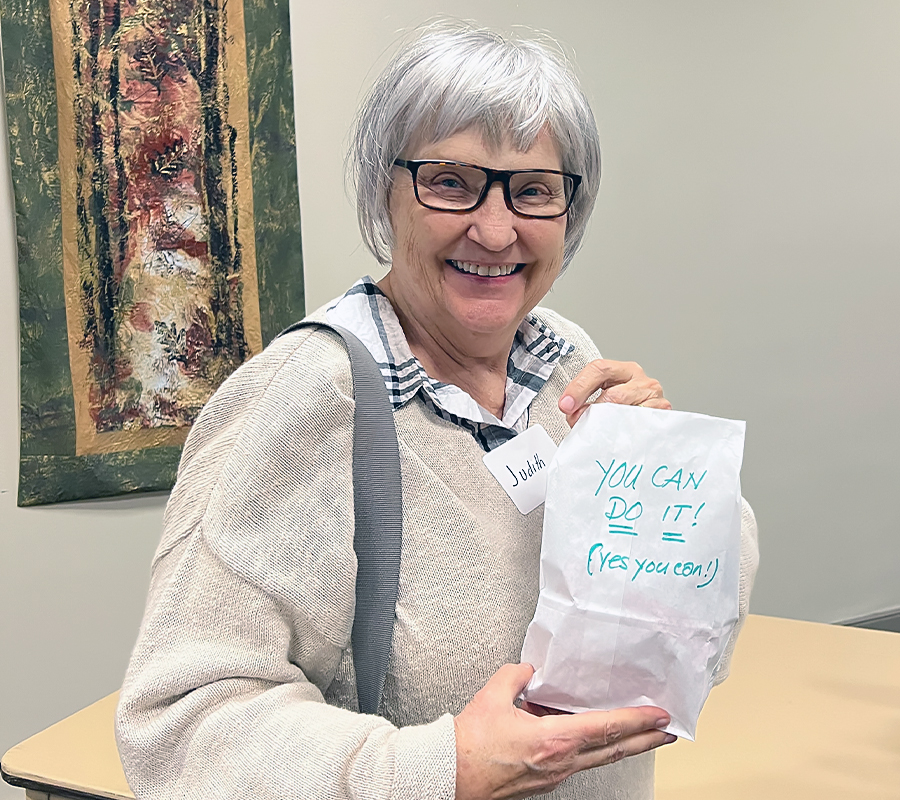 Judith
YOU CAN
DO IT!
(Yes you can!)